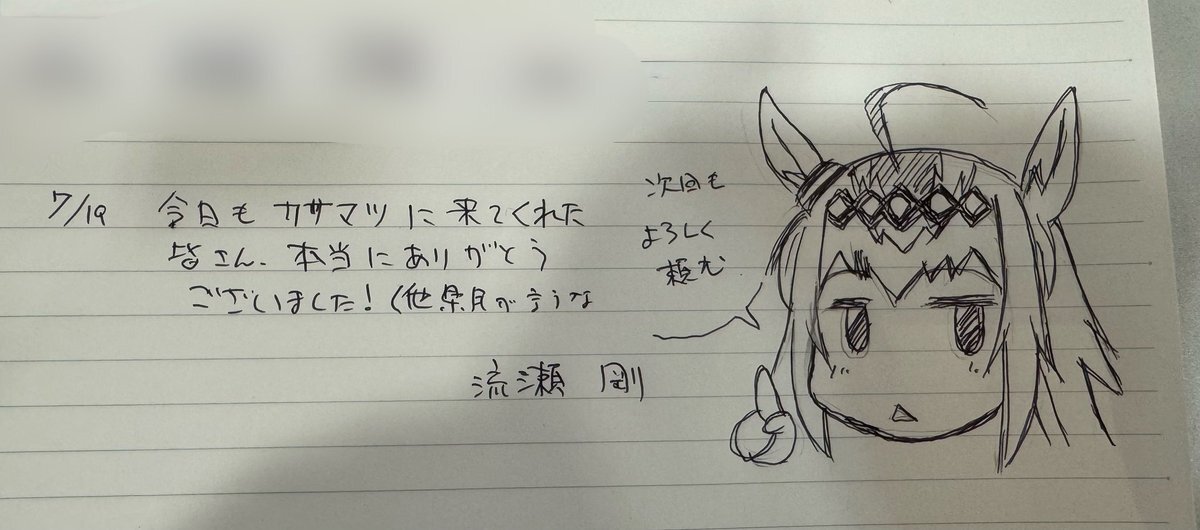 7/19 今日もカサマツに来てくれた
皆さん、本当にありがとう
ございました！(他県民が言うな
流瀬 剛
次回も
よろしく
頼む.